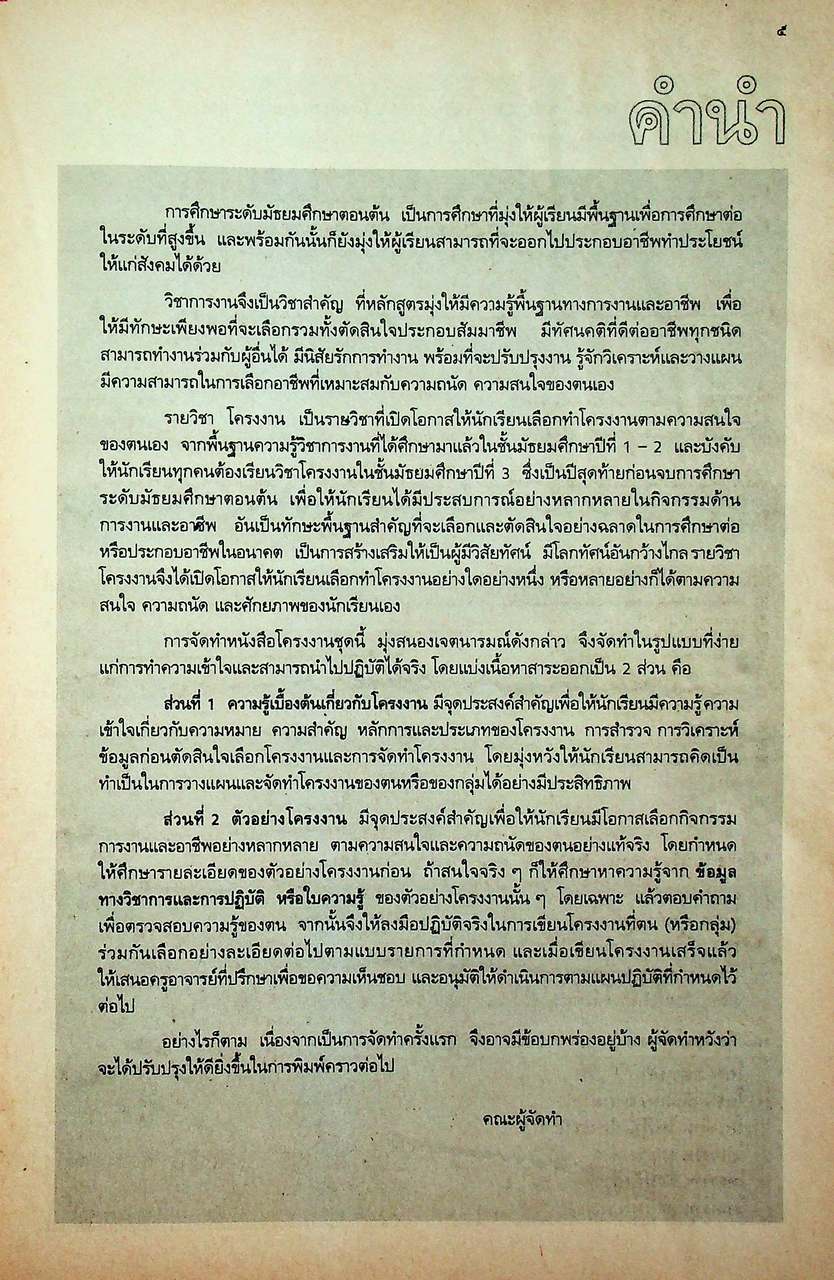 ๕
คำนำ
การศึกษาระดับมัธยมศึกษาตอนต้น เป็นการศึกษาที่มุ่งให้ผู้เรียนมีพื้นฐานเพื่อการศึกษาต่อ
ในระดับที่สูงขึ้น และพร้อมกันนั้นก็ยังมุ่งให้ผู้เรียนสามารถที่จะออกไปประกอบอาชีพทำประโยชน์
ให้แก่สังคมได้ด้วย
วิชาการงานจึงเป็นวิชาสำคัญ ที่หลักสูตรมุ่งให้มีความรู้พื้นฐานทางการงานและอาชีพ เพื่อ
ให้มีทักษะเพียงพอที่จะเลือกรวมทั้งตัดสินใจประกอบสัมมาชีพ มีทัศนคติที่ดีต่ออาชีพทุกชนิด
สามารถทำงานร่วมกับผู้อื่นได้ มีนิสัยรักการทำงาน พร้อมที่จะปรับปรุงงาน รู้จักวิเคราะห์และวางแผน
มีความสามารถในการเลือกอาชีพที่เหมาะสมกับความถนัด ความสนใจของตนเอง
รายวิชา โครงงาน เป็นรายวิชาที่เปิดโอกาสให้นักเรียนเลือกทำโครงงานตามความสนใจ
ของตนเอง จากพื้นฐานความรู้วิชาการงานที่ได้ศึกษามาแล้วในชั้นมัธยมศึกษาปีที่ 1 – 2 และบังคับ
ให้นักเรียนทุกคนต้องเรียนวิชาโครงงานในชั้นมัธยมศึกษาปีที่ 3 ซึ่งเป็นปีสุดท้ายก่อนจบการศึกษา
ระดับมัธยมศึกษาตอนต้น เพื่อให้นักเรียนได้มีประสบการณ์อย่างหลากหลายในกิจกรรมด้าน
การงานและอาชีพ อันเป็นทักษะพื้นฐานสำคัญที่จะเลือกและตัดสินใจอย่างฉลาดในการศึกษาต่อ
หรือประกอบอาชีพในอนาคต เป็นการสร้างเสริมให้เป็นผู้มีวิสัยทัศน์ มีโลกทัศน์อันกว้างไกล รายวิชา
โครงงานจึงได้เปิดโอกาสให้นักเรียนเลือกทำโครงงานอย่างใดอย่างหนึ่ง หรือหลายอย่างก็ได้ตามความ
สนใจ ความถนัด และศักยภาพของนักเรียนเอง
การจัดทำหนังสือโครงงานชุดนี้ มุ่งสนองเจตนารมณ์ดังกล่าว จึงจัดทำในรูปแบบที่ง่าย
แก่การทำความเข้าใจและสามารถนำไปปฏิบัติได้จริง โดยแบ่งเนื้อหาสาระออกเป็น 2 ส่วน คือ
ส่วนที่ 1 ความรู้เบื้องต้นเกี่ยวกับโครงงาน มีจุดประสงค์สำคัญเพื่อให้นักเรียนมีความรู้ความ
เข้าใจเกี่ยวกับความหมาย ความสำคัญ หลักการและประเภทของโครงงาน การสำรวจ การวิเคราะห์
ข้อมูลก่อนตัดสินใจเลือกโครงงานและการจัดทำโครงงาน โดยมุ่งหวังให้นักเรียนสามารถคิดเป็น
ทำเป็นในการวางแผนและจัดทำโครงงานของตนหรือของกลุ่มได้อย่างมีประสิทธิภาพ
ส่วนที่ 2 ตัวอย่างโครงงาน มีจุดประสงค์สำคัญเพื่อให้นักเรียนมีโอกาสเลือกกิจกรรม
การงานและอาชีพอย่างหลากหลาย ตามความสนใจและความถนัดของตนอย่างแท้จริง โดยกำหนด
ให้ศึกษารายละเอียดของตัวอย่างโครงงานก่อน ถ้าสนใจจริง ๆ ก็ให้ศึกษาหาความรู้จาก ข้อมูล
ทางวิชาการและการปฏิบัติ หรือใบความรู้ ของตัวอย่างโครงงานนั้น ๆ โดยเฉพาะ แล้วตอบคำถาม
เพื่อตรวจสอบความรู้ของตน จากนั้นจึงให้ลงมือปฏิบัติจริงในการเขียนโครงงานที่ตน (หรือกลุ่ม)
ร่วมกันเลือกอย่างละเอียดต่อไปตามแบบรายการที่กำหนด และเมื่อเขียนโครงงานเสร็จแล้ว
ให้เสนอครูอาจารย์ที่ปรึกษาเพื่อขอความเห็นชอบ และอนุมัติให้ดำเนินการตามแผนปฏิบัติที่กำหนดไว้
ต่อไป
อย่างไรก็ตาม เนื่องจากเป็นการจัดทำครั้งแรก จึงอาจมีข้อบกพร่องอยู่บ้าง ผู้จัดทำหวังว่า
จะได้ปรับปรุงให้ดียิ่งขึ้นในการพิมพ์คราวต่อไป
คณะผู้จัดทำ